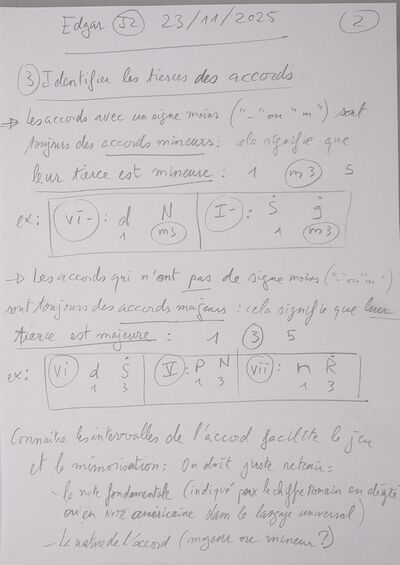 Edgar J2 23/11/2025 2
3 Identifier les tierces des accords
→ Les accords avec un signe moins ("-" ou "m") sont
toujours des accords mineurs : cela signifie que
leur tierce est mineure : 1 m3 5
ex : vi- : d N I- : Ṡ ġ
1 m3 1 m3
→ Les accords qui n'ont pas de signe moins ("-" ou "m")
sont toujours des accords majeurs : cela signifie que leur
tierce est majeure : 1 3 5
ex : vi d Ṡ V : P N vii : n Ṙ
1 3 1 3 1 3
Connaître les intervalles de l'accord facilite le jeu
et la mémorisation : On doit juste retenir :
- la note fondamentale (indiqué par le chiffre romain en degré
ou en note américaine dans le langage universel)
- La nature de l'accord (majeur ou mineur ?)